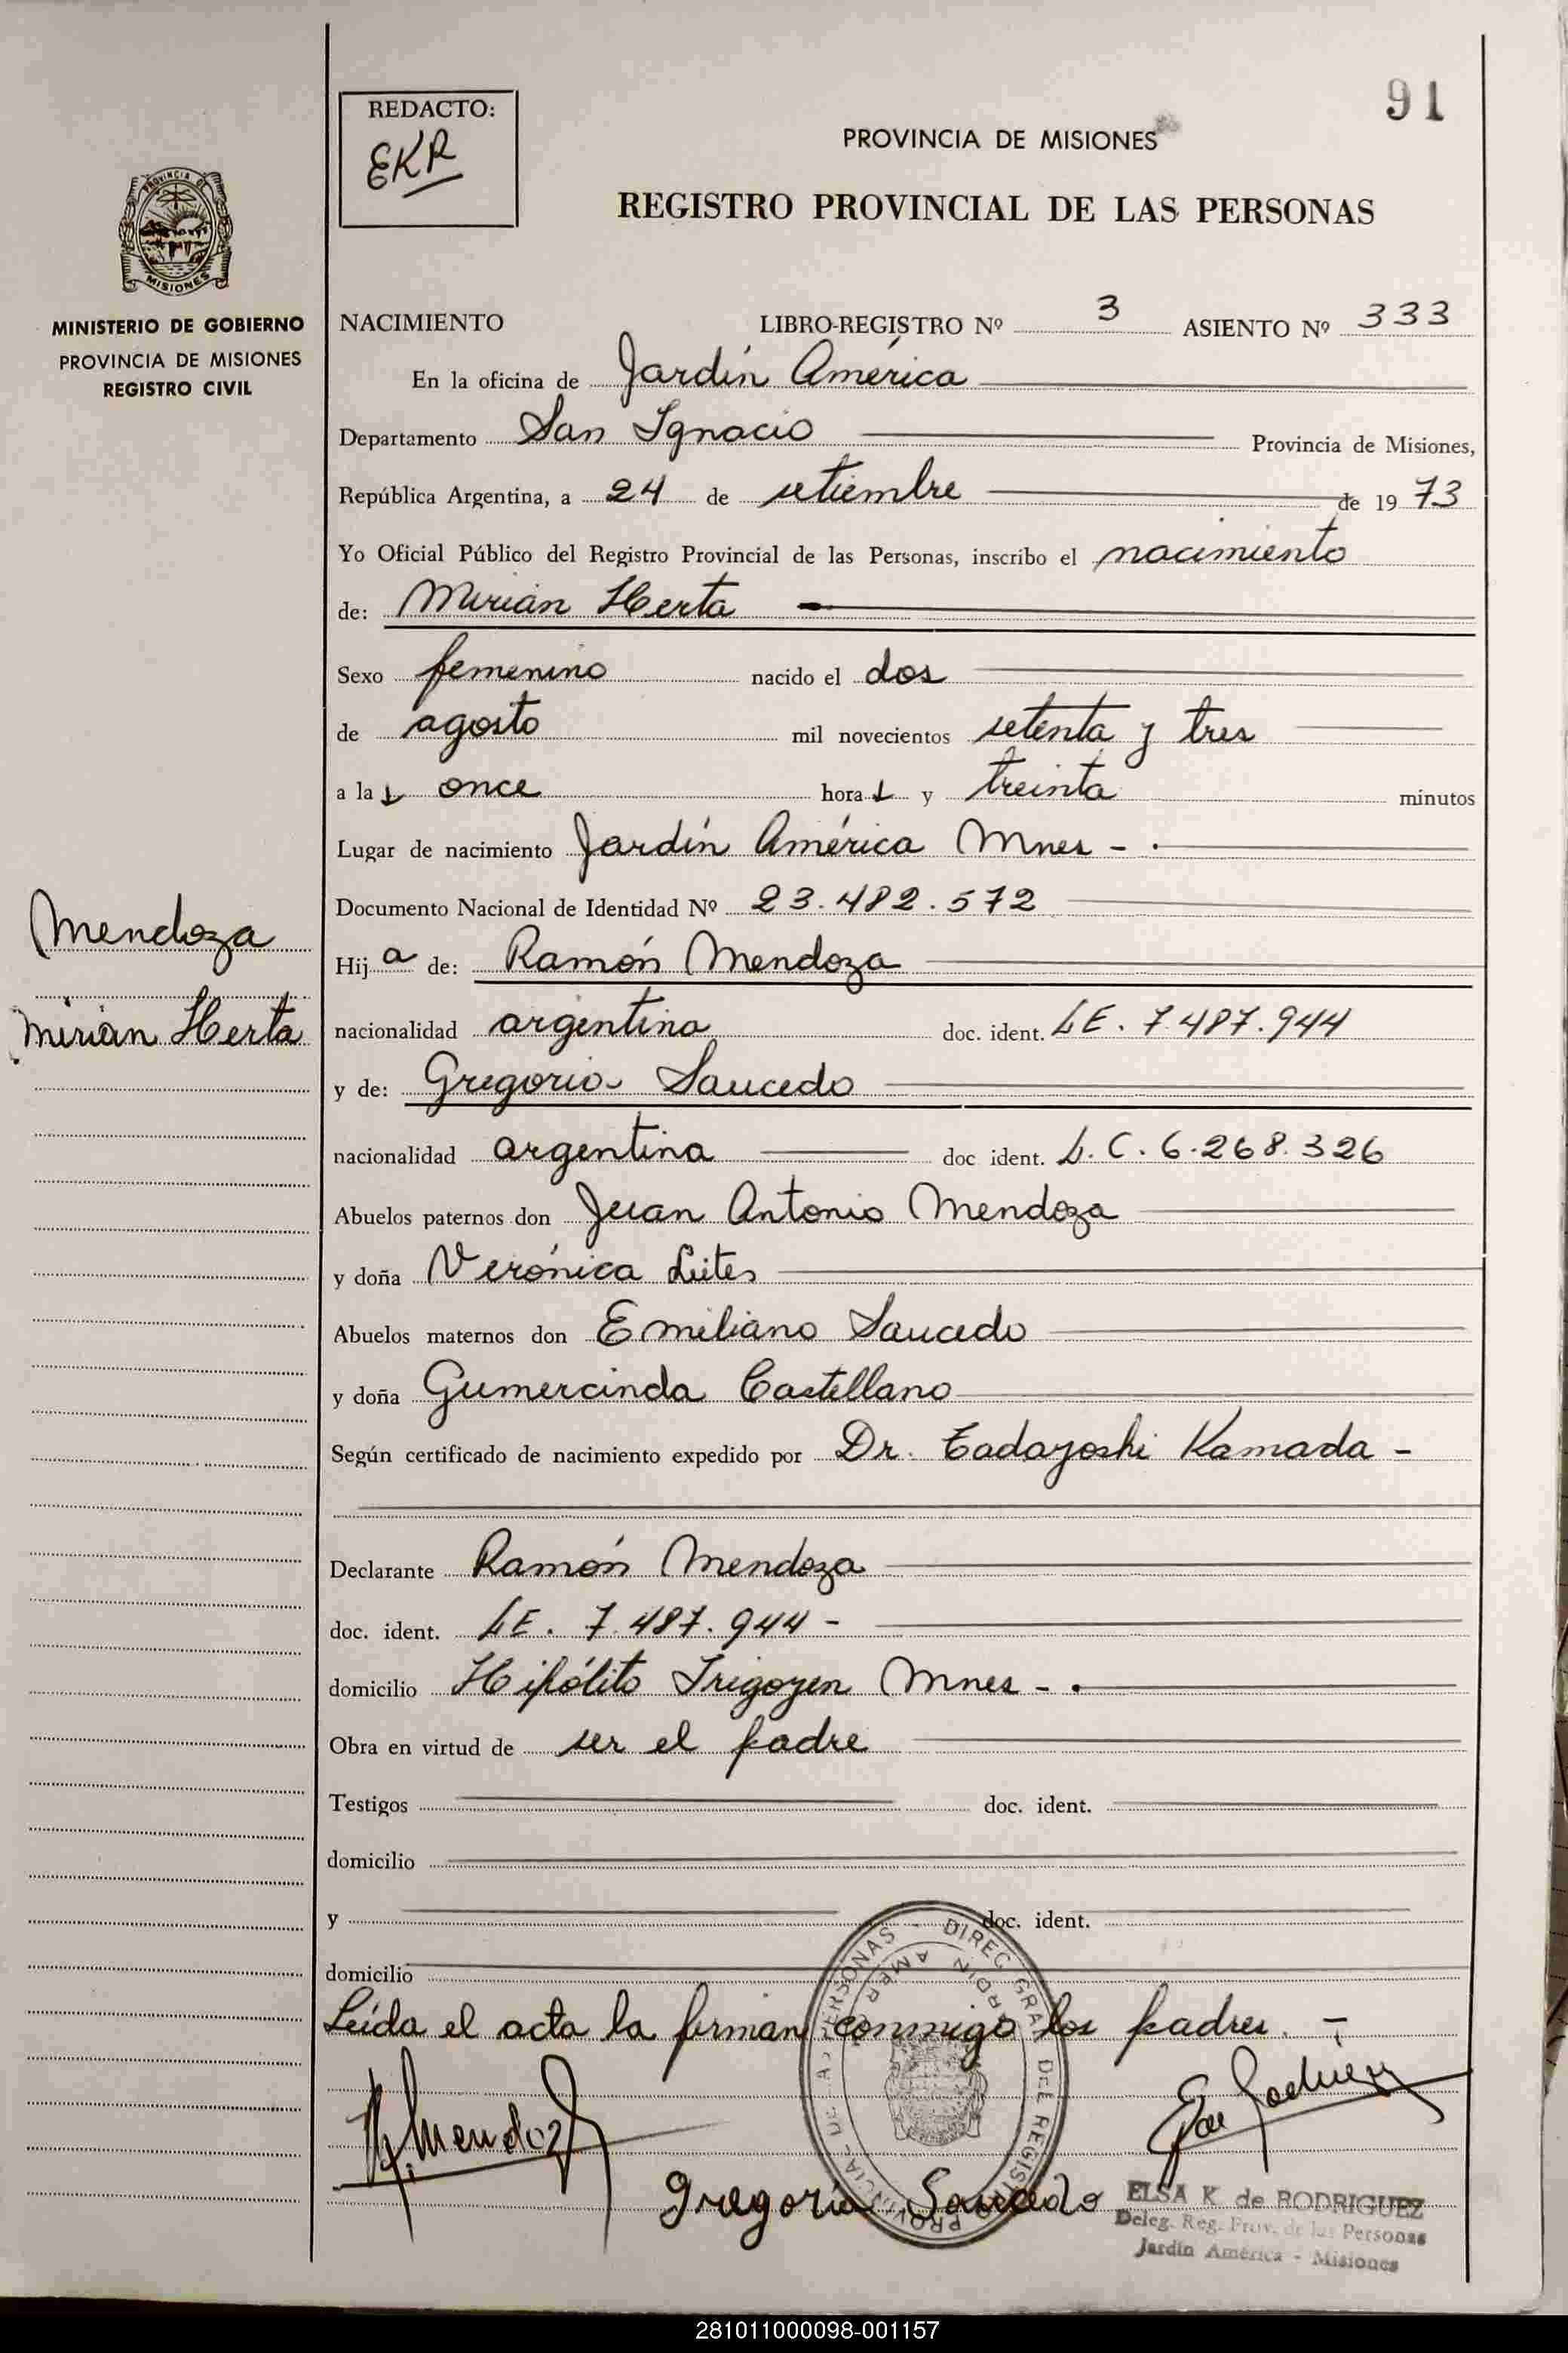 91
REDACTO:
EKR
PROVINCIA DE MISIONES
REGISTRO PROVINCIAL DE LAS PERSONAS
PROVINCIA DE
MISIONES
MINISTERIO DE GOBIERNO
PROVINCIA DE MISIONES
REGISTRO CIVIL
NACIMIENTO LIBRO-REGISTRO Nº 3 ASIENTO Nº 333
En la oficina de Jardín América
Departamento San Ignacio Provincia de Misiones,
República Argentina, a 24 de setiembre de 19 73
Yo Oficial Público del Registro Provincial de las Personas, inscribo el nacimiento
de: Mirian Herta
Sexo femenino nacido el dos
de agosto mil novecientos setenta y tres
a la s once hora s y treinta minutos
Lugar de nacimiento Jardín América Mnes - .
Documento Nacional de Identidad Nº 23.482.572
Mendoza
Mirian Herta
Hij a de: Ramón Mendoza
nacionalidad argentina doc. ident. LE. 7.487.944
y de: Gregoria Saucedo
nacionalidad argentina doc ident. L.C. 6.268.326
Abuelos paternos don Juan Antonio Mendoza
y doña Verónica Leites
Abuelos maternos don Emiliano Saucedo
y doña Gumercinda Castellano
Según certificado de nacimiento expedido por Dr. Tadayoshi Kamada -
Declarante Ramón Mendoza
doc. ident. LE. 7.487.944 -
domicilio Hipólito Irigoyen Mnes - .
Obra en virtud de ser el padre
Testigos doc. ident.
domicilio
y doc. ident.
domicilio
Leída el acta la firman conmigo los padres. -
DIREC. GRAL. DEL REGISTRO PROVINCIAL DE LAS PERSONAS
JARDIN AMERICA
R. Mendoza
Gregoria Saucedo
ELSA K. de RODRIGUEZ
Deleg. Reg. Prov. de las Personas
Jardín América - Misiones
281011000098-001157